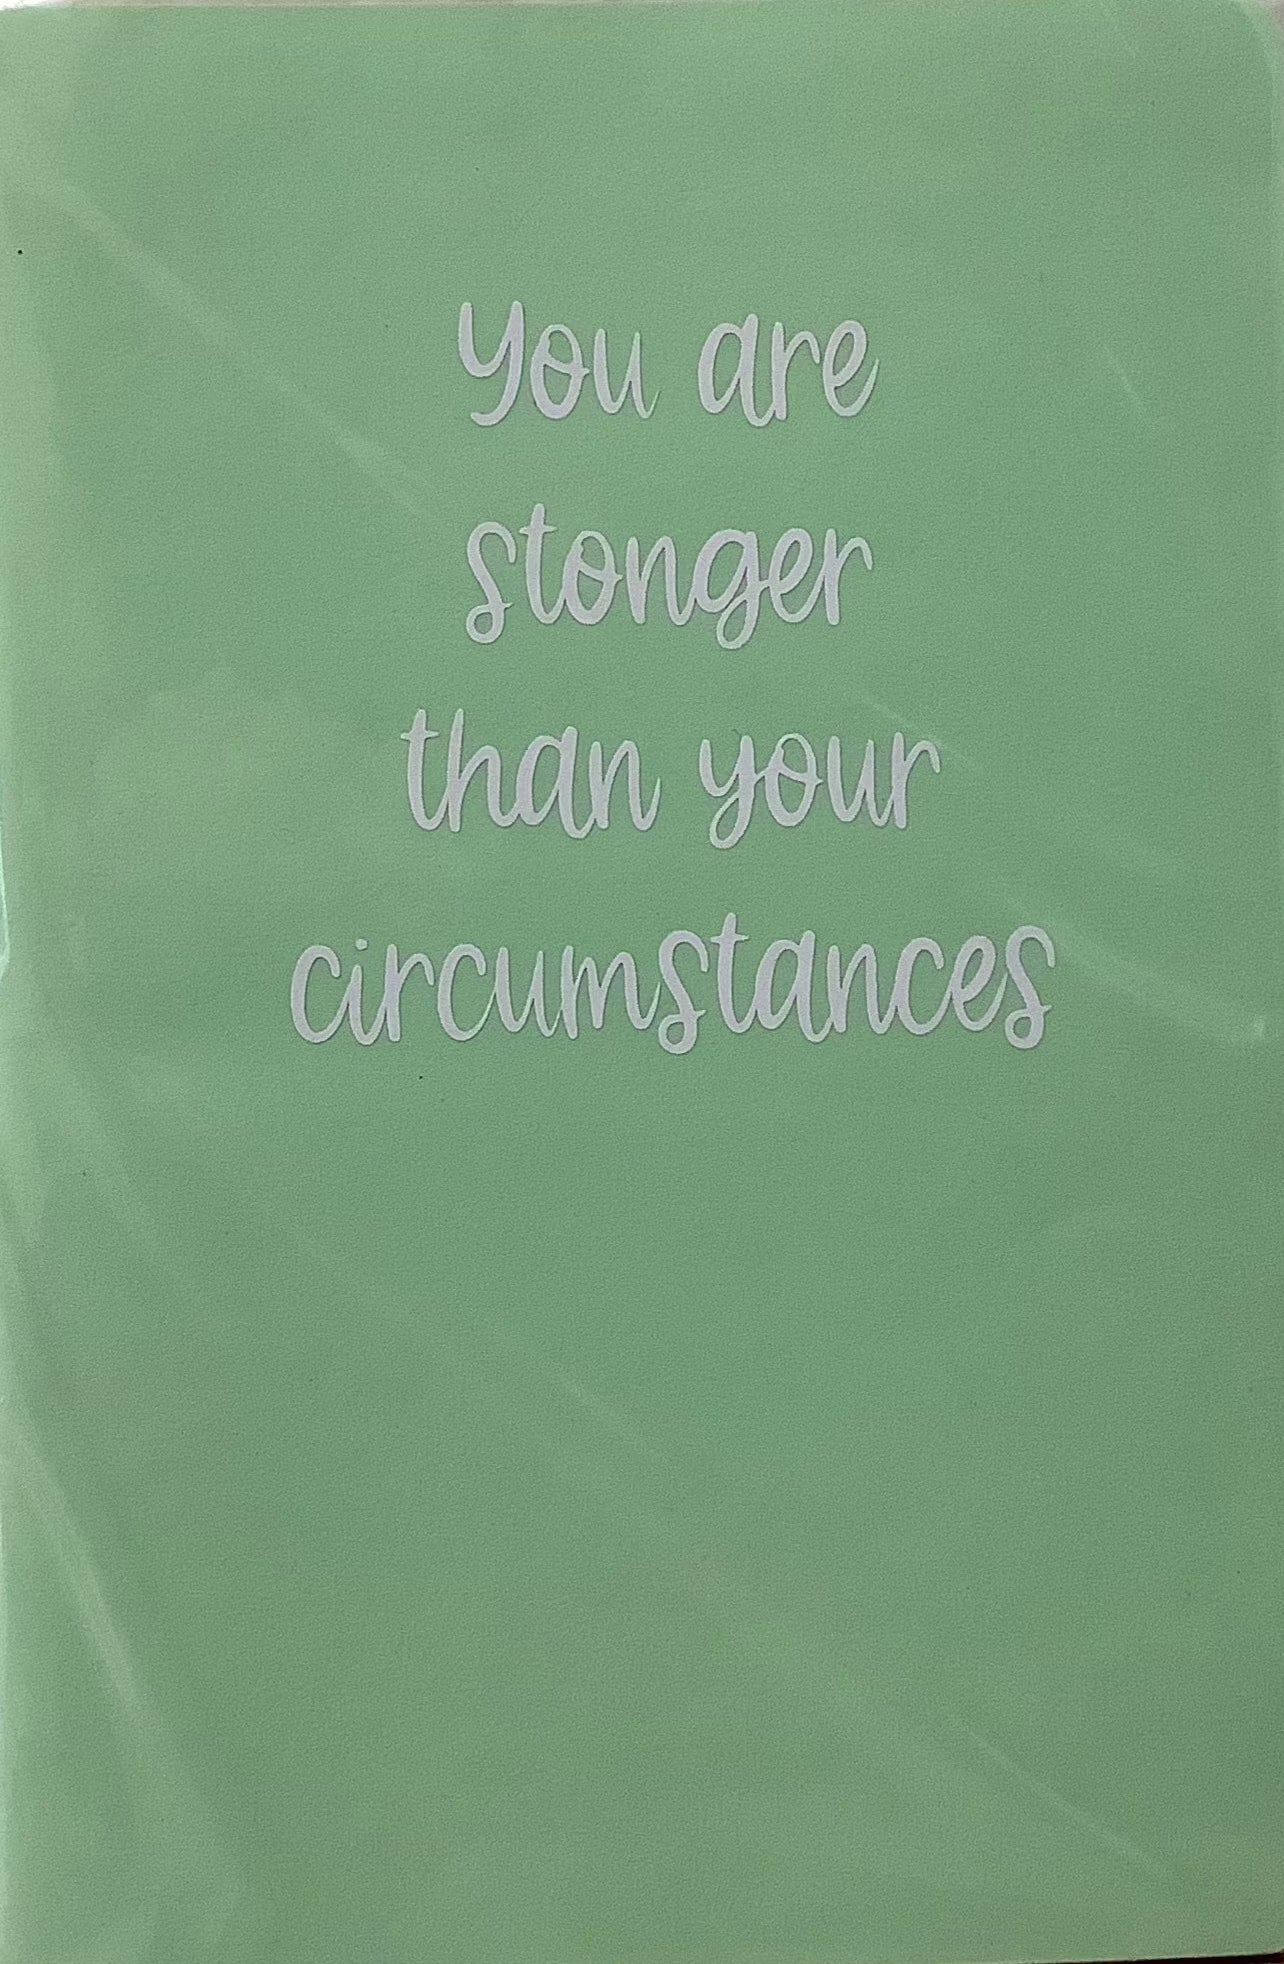 You are
stonger
than your
circumstances